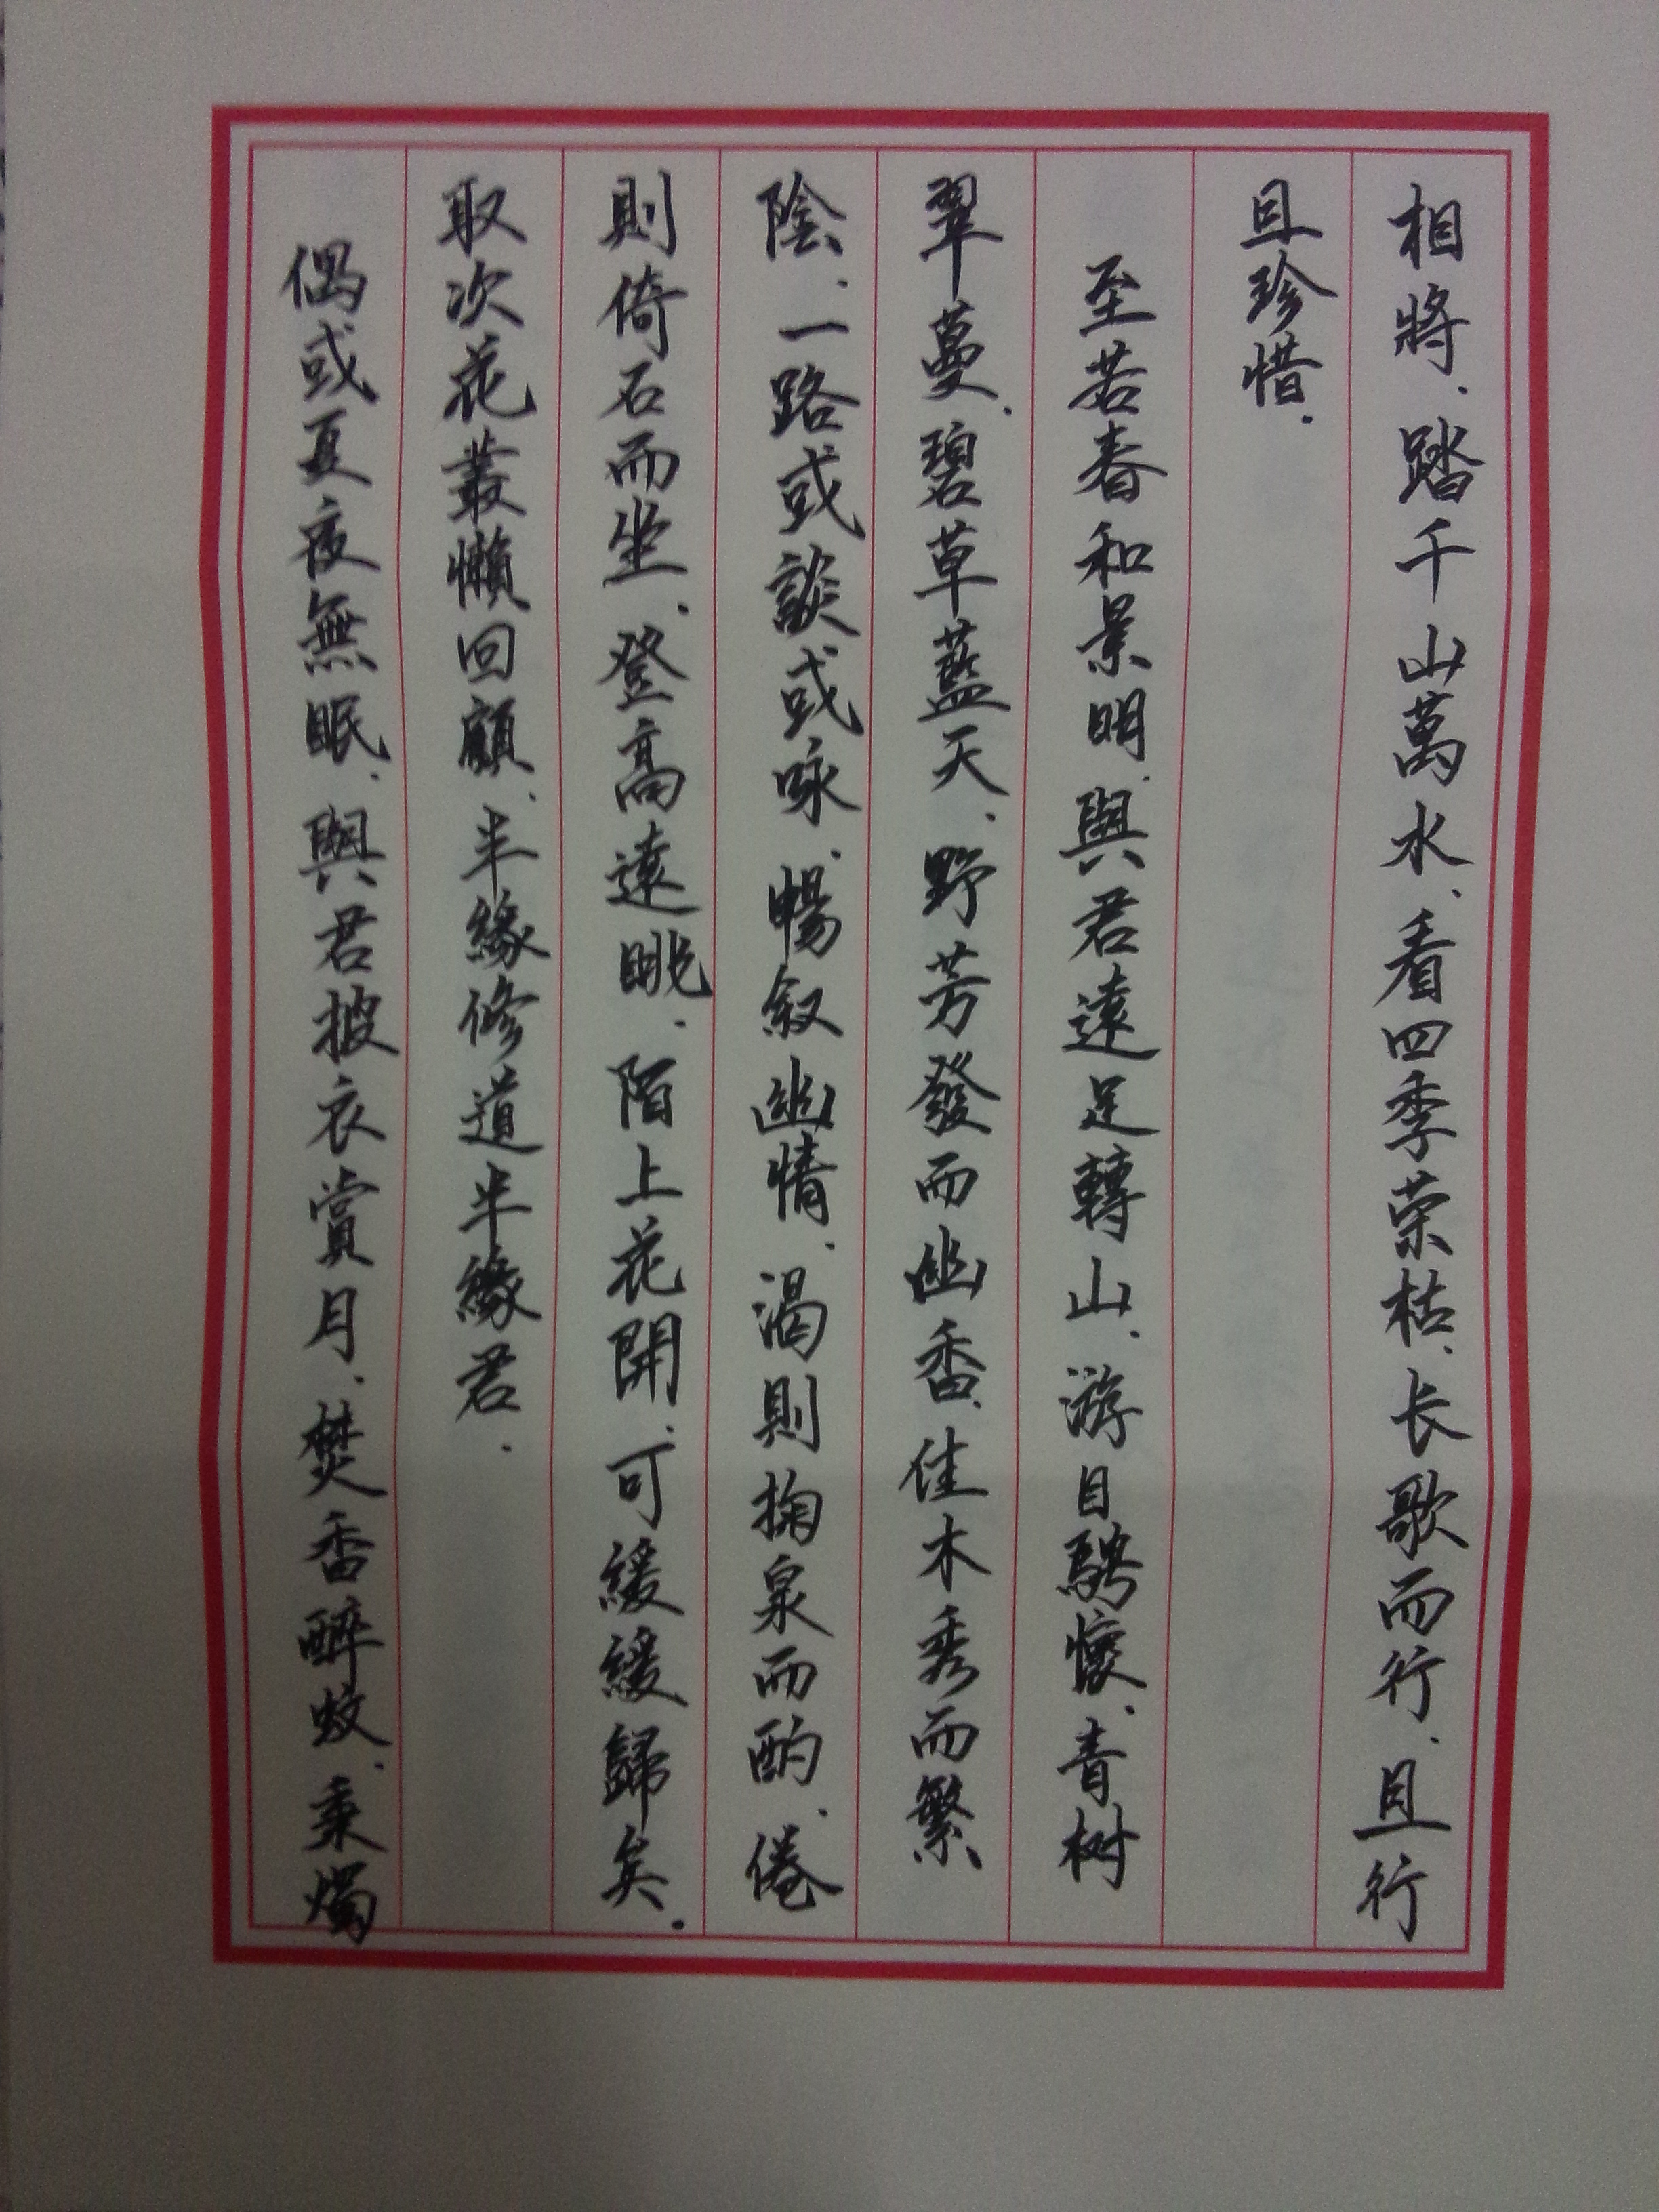 相將.踏千山萬水.看四季荣枯.长歌而行.且行
且珍惜.
至若春和景明.與君遠足轉山.游目騁懷.青树
翠蔓.碧草藍天.野芳發而幽香.佳木秀而繁
陰.一路或談或咏.暢叙幽情.渴則掬泉而酌.倦
則倚石而坐.登高遠眺.陌上花開.可緩緩歸矣.
取次花叢懶回顧.半緣修道半緣君.
偶或夏夜無眠.與君披衣賞月.焚香醉蚊.秉燭